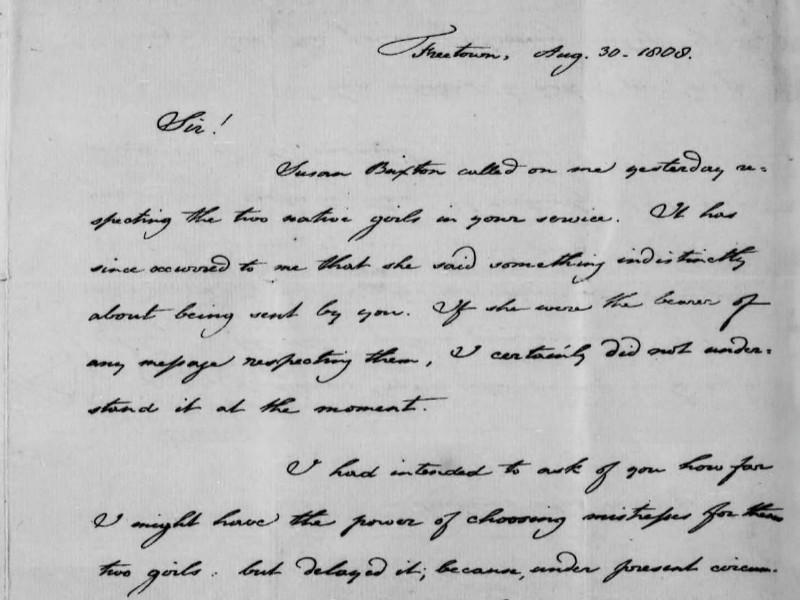 Freetown, Aug. 30 - 1808.
Sir!
Susan Buxton called on me yesterday re=
specting the two native girls in your service. It has
since occurred to me that she said something indistinctly
about being sent by you. If she were the bearer of
any message respecting them, I certainly did not under=
stand it at the moment.
I had intended to ask of you how far
I might have the power of choosing mistresses for these
two girls: but delayed it; because, under present circum=